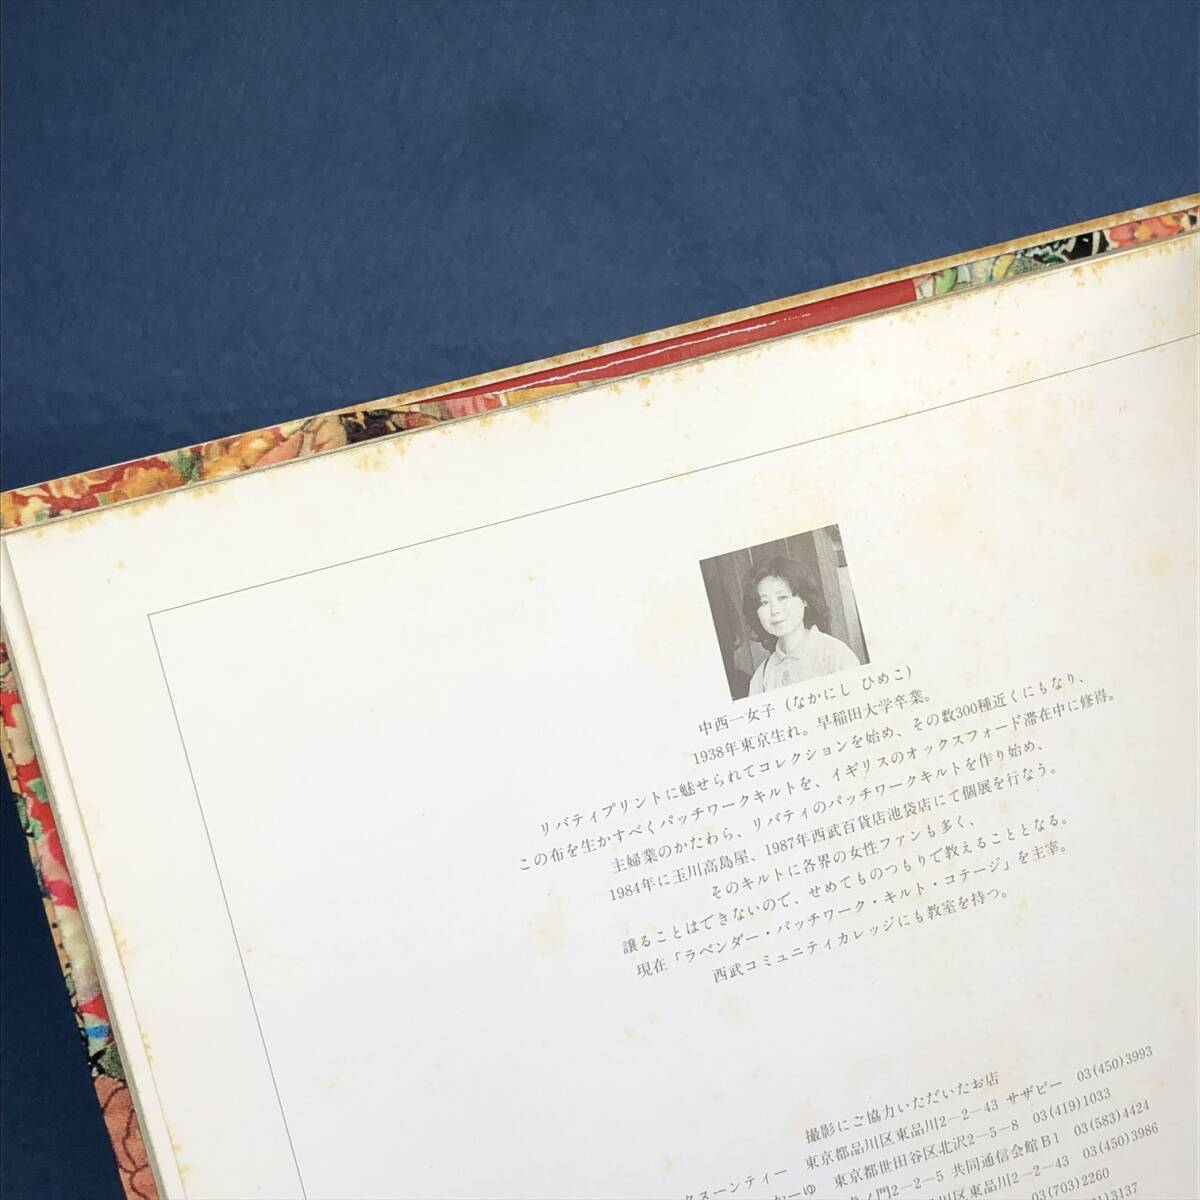 中西一女子（なかにし ひめこ）
1938年東京生れ。早稲田大学卒業。
リバティプリントに魅せられてコレクションを始め、その数300種近くにもなり、
この布を生かすべくパッチワークキルトを、イギリスのオックスフォード滞在中に修得。
主婦業のかたわら、リバティのパッチワークキルトを作り始め、
1984年に玉川高島屋、1987年西武百貨店池袋店にて個展を行なう。
そのキルトに各界の女性ファンも多く、
譲ることはできないので、せめてものつもりで教えることとなる。
現在「ラベンダー・パッチワーク・キルト・コテージ」を主宰。
西武コミュニティカレッジにも教室を持つ。
撮影にご協力いただいたお店
クスーンティー 東京都品川区東品川2－2－43 サザビー 03(450)3993
かーゆ 東京都世田谷区北沢2－5－8 03(419)1033
ノ門2－2－5 共同通信会館B1 03(583)4424
区東品川2－2－43 03(450)3986
03(703)2260
3137